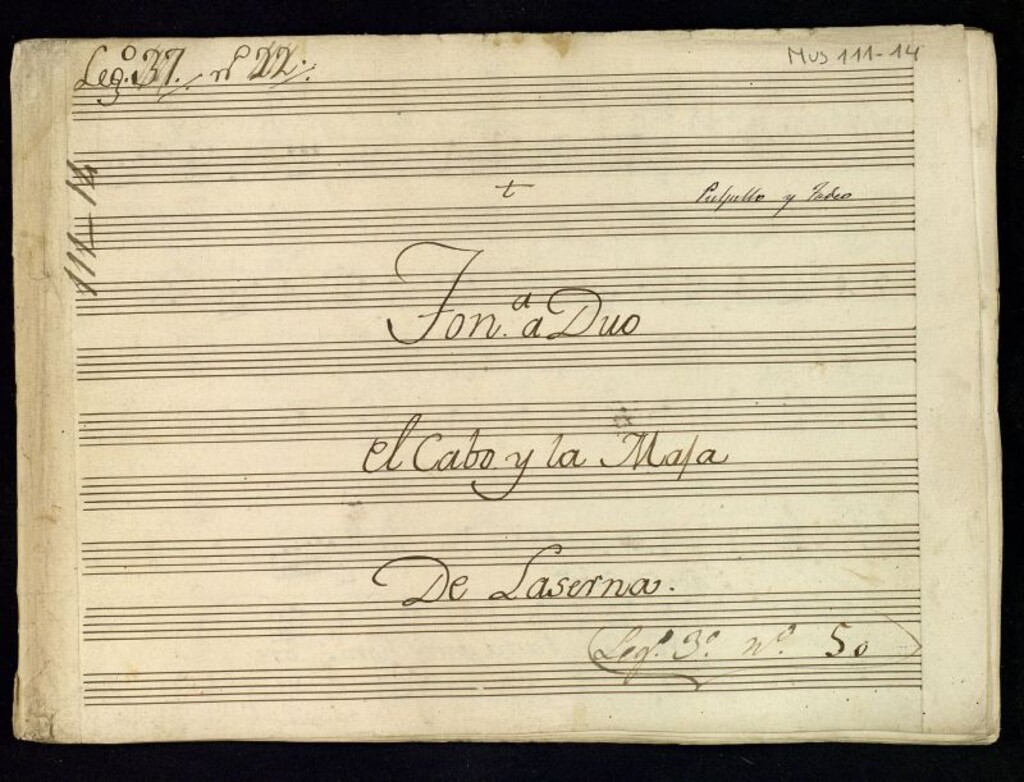 Leg.º 37. nº 22.
MUS 111-14
111-14
t
Pulpillo y Tadeo
Ton.a a Duo
el Cabo y la Maja
De Laserna.
Leg.º 3.º nº. 50